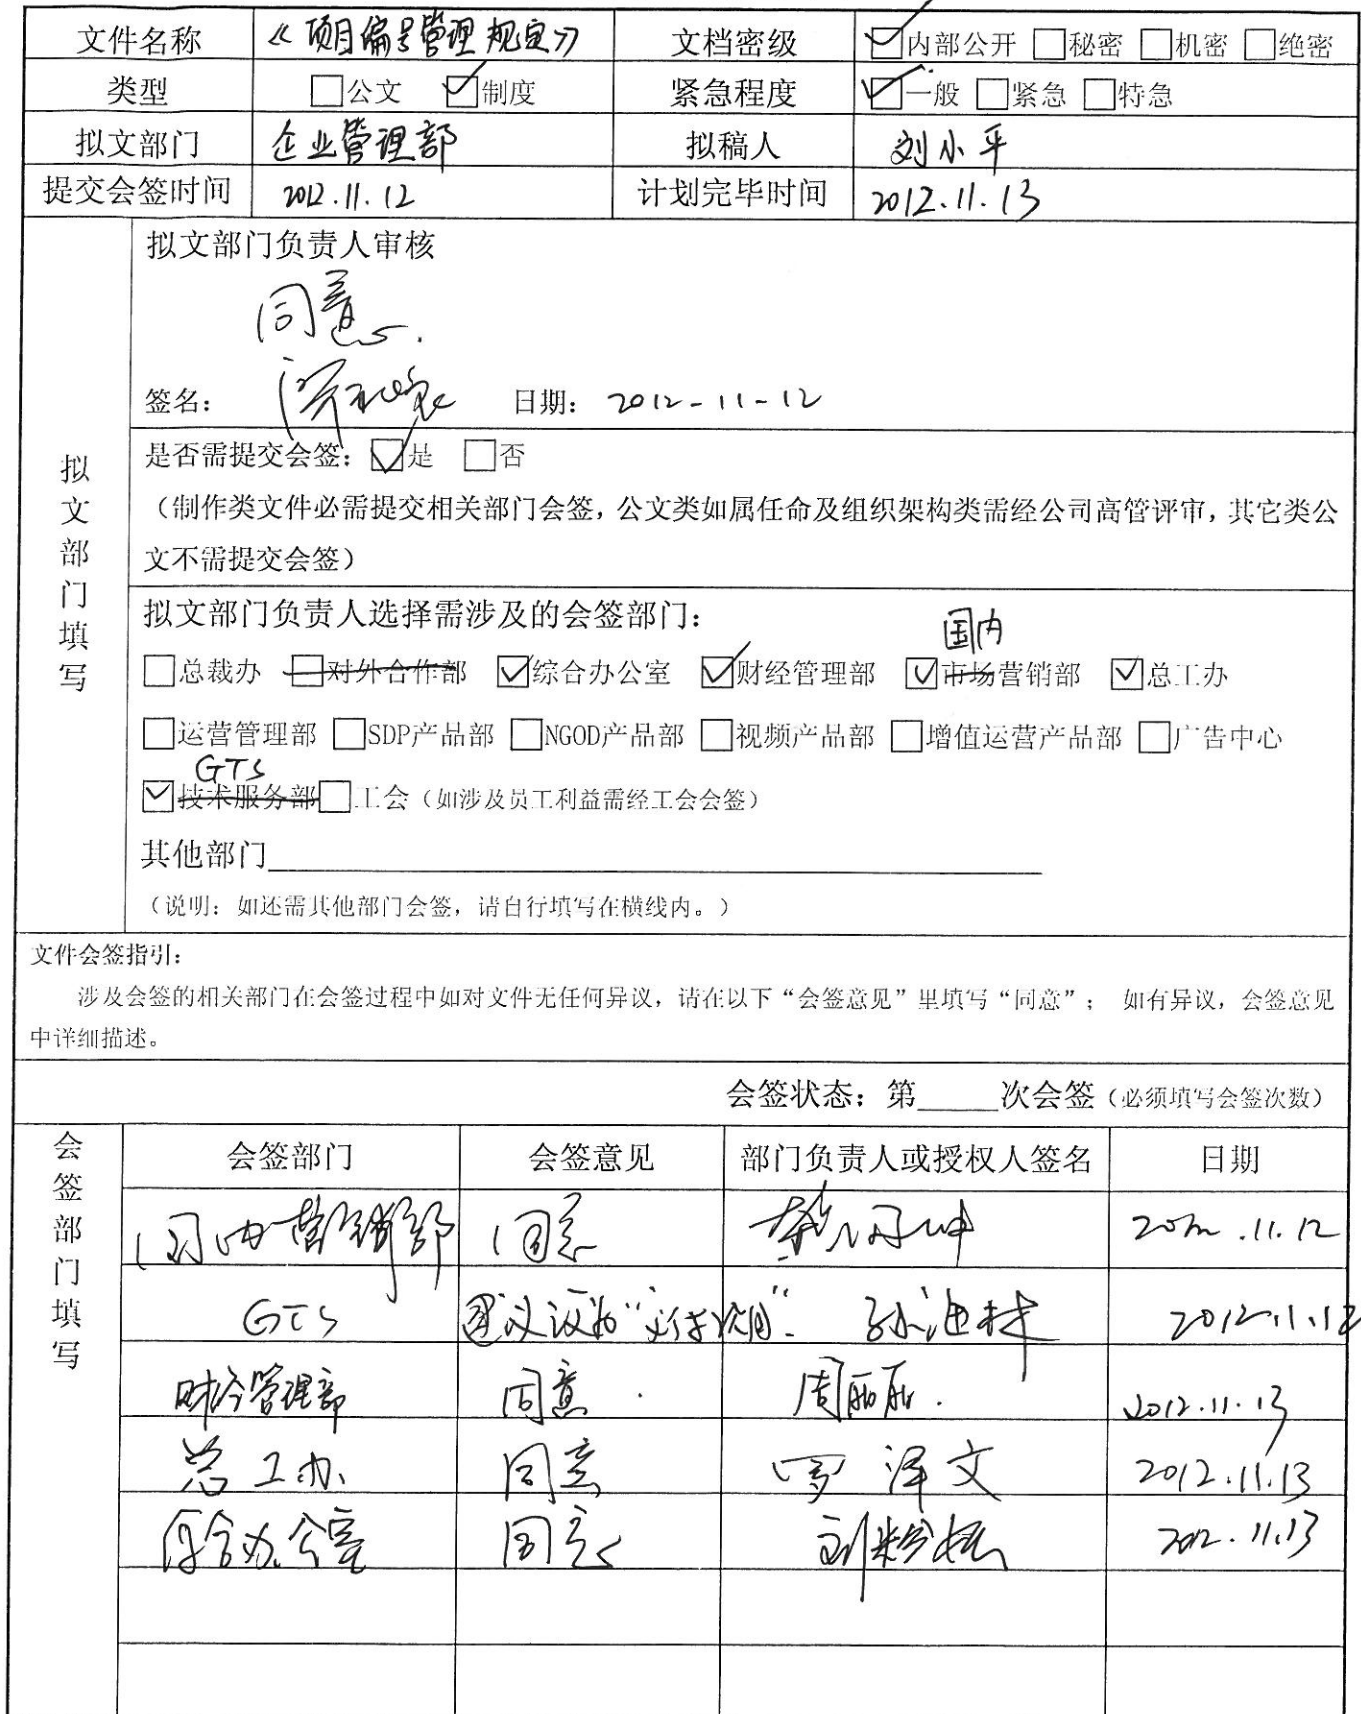 文件名称 《项目编号管理规定》 文档密级 ☑内部公开 □秘密 □机密 □绝密
类型 □公文 ☑制度 紧急程度 ☑一般 □紧急 □特急
拟文部门 企业管理部 拟稿人 刘小平
提交会签时间 2012.11.12 计划完毕时间 2012.11.13
拟文部门填写
拟文部门负责人审核
同意.
签名: 日期: 2012-11-12
是否需提交会签: ☑是 □否
（制作类文件必需提交相关部门会签,公文类如属任命及组织架构类需经公司高管评审,其它类公
文不需提交会签）
拟文部门负责人选择需涉及的会签部门:
国内
□总裁办 □对外合作部 ☑综合办公室 ☑财经管理部 ☑市场营销部 ☑总工办
□运营管理部 □SDP产品部 □NGOD产品部 □视频产品部 □增值运营产品部 □广告中心
GTS
☑技术服务部□工会（如涉及员工利益需经工会会签）
其他部门
（说明: 如还需其他部门会签, 请自行填写在横线内。）
文件会签指引:
涉及会签的相关部门在会签过程中如对文件无任何异议, 请在以下“会签意见”里填写“同意”; 如有异议, 会签意见
中详细描述。
会签状态: 第 次会签（必须填写会签次数）
会签部门填写
会签部门 会签意见 部门负责人或授权人签名 日期
国内营销部 同意 2012.11.12
GTS 建议议为 2012.11.12
财经管理部 同意. 周丽丽. 2012.11.13
总工办 同意 罗泽文 2012.11.13
综合办公室 同意 2012.11.13